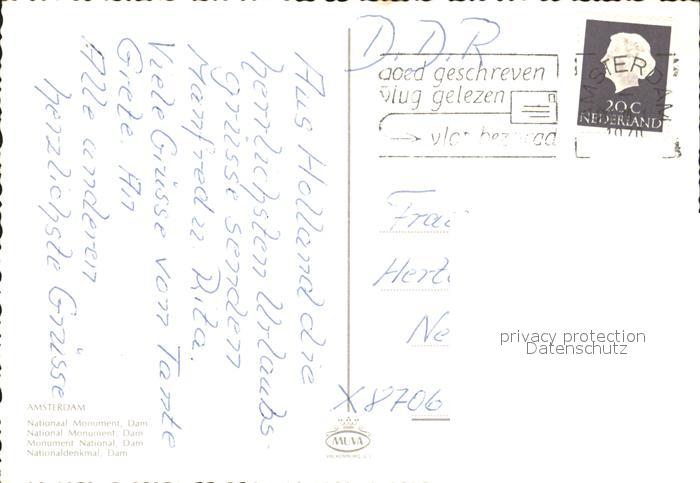 Aus Holland die
herrlichsten Urlaubs-
grüsse senden
Manfred u. Rita.
Viele Grüsse von Tante
Grete. An
Alle anderen
herzlichste Grüsse
AMSTERDAM
Nationaal Monument, Dam
National Monument, Dam
Monument National, Dam
Nationaldenkmal, Dam
D.D.R
goed geschreven
vlug gelezen
vlot bezorgd
AMSTERDAM
20 C
NEDERLAND
Frau
Hert
Ne
X 8706
MUVA
privacy protection
Datenschutz